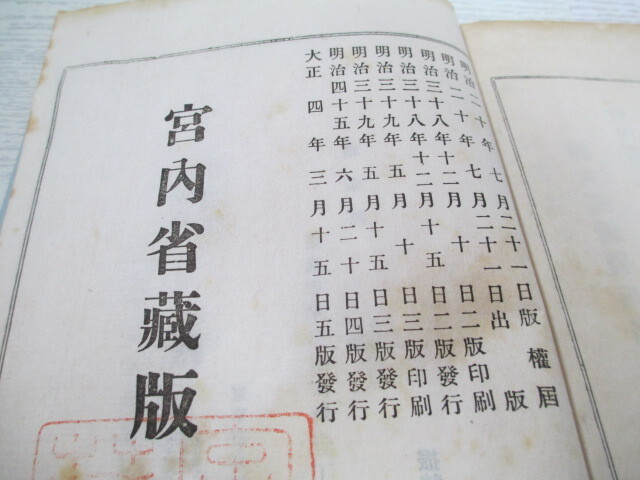 明治二十年七月二十一日版權屆
明治二十年七月二十一日出版
明治三十八年十二月十日二版印刷
明治三十八年十二月十五日二版發行
明治三十九年五月十日三版印刷
明治三十九年五月十五日三版發行
明治四十五年六月二十日四版發行
大正四年三月十五日五版發行
宮內省藏版